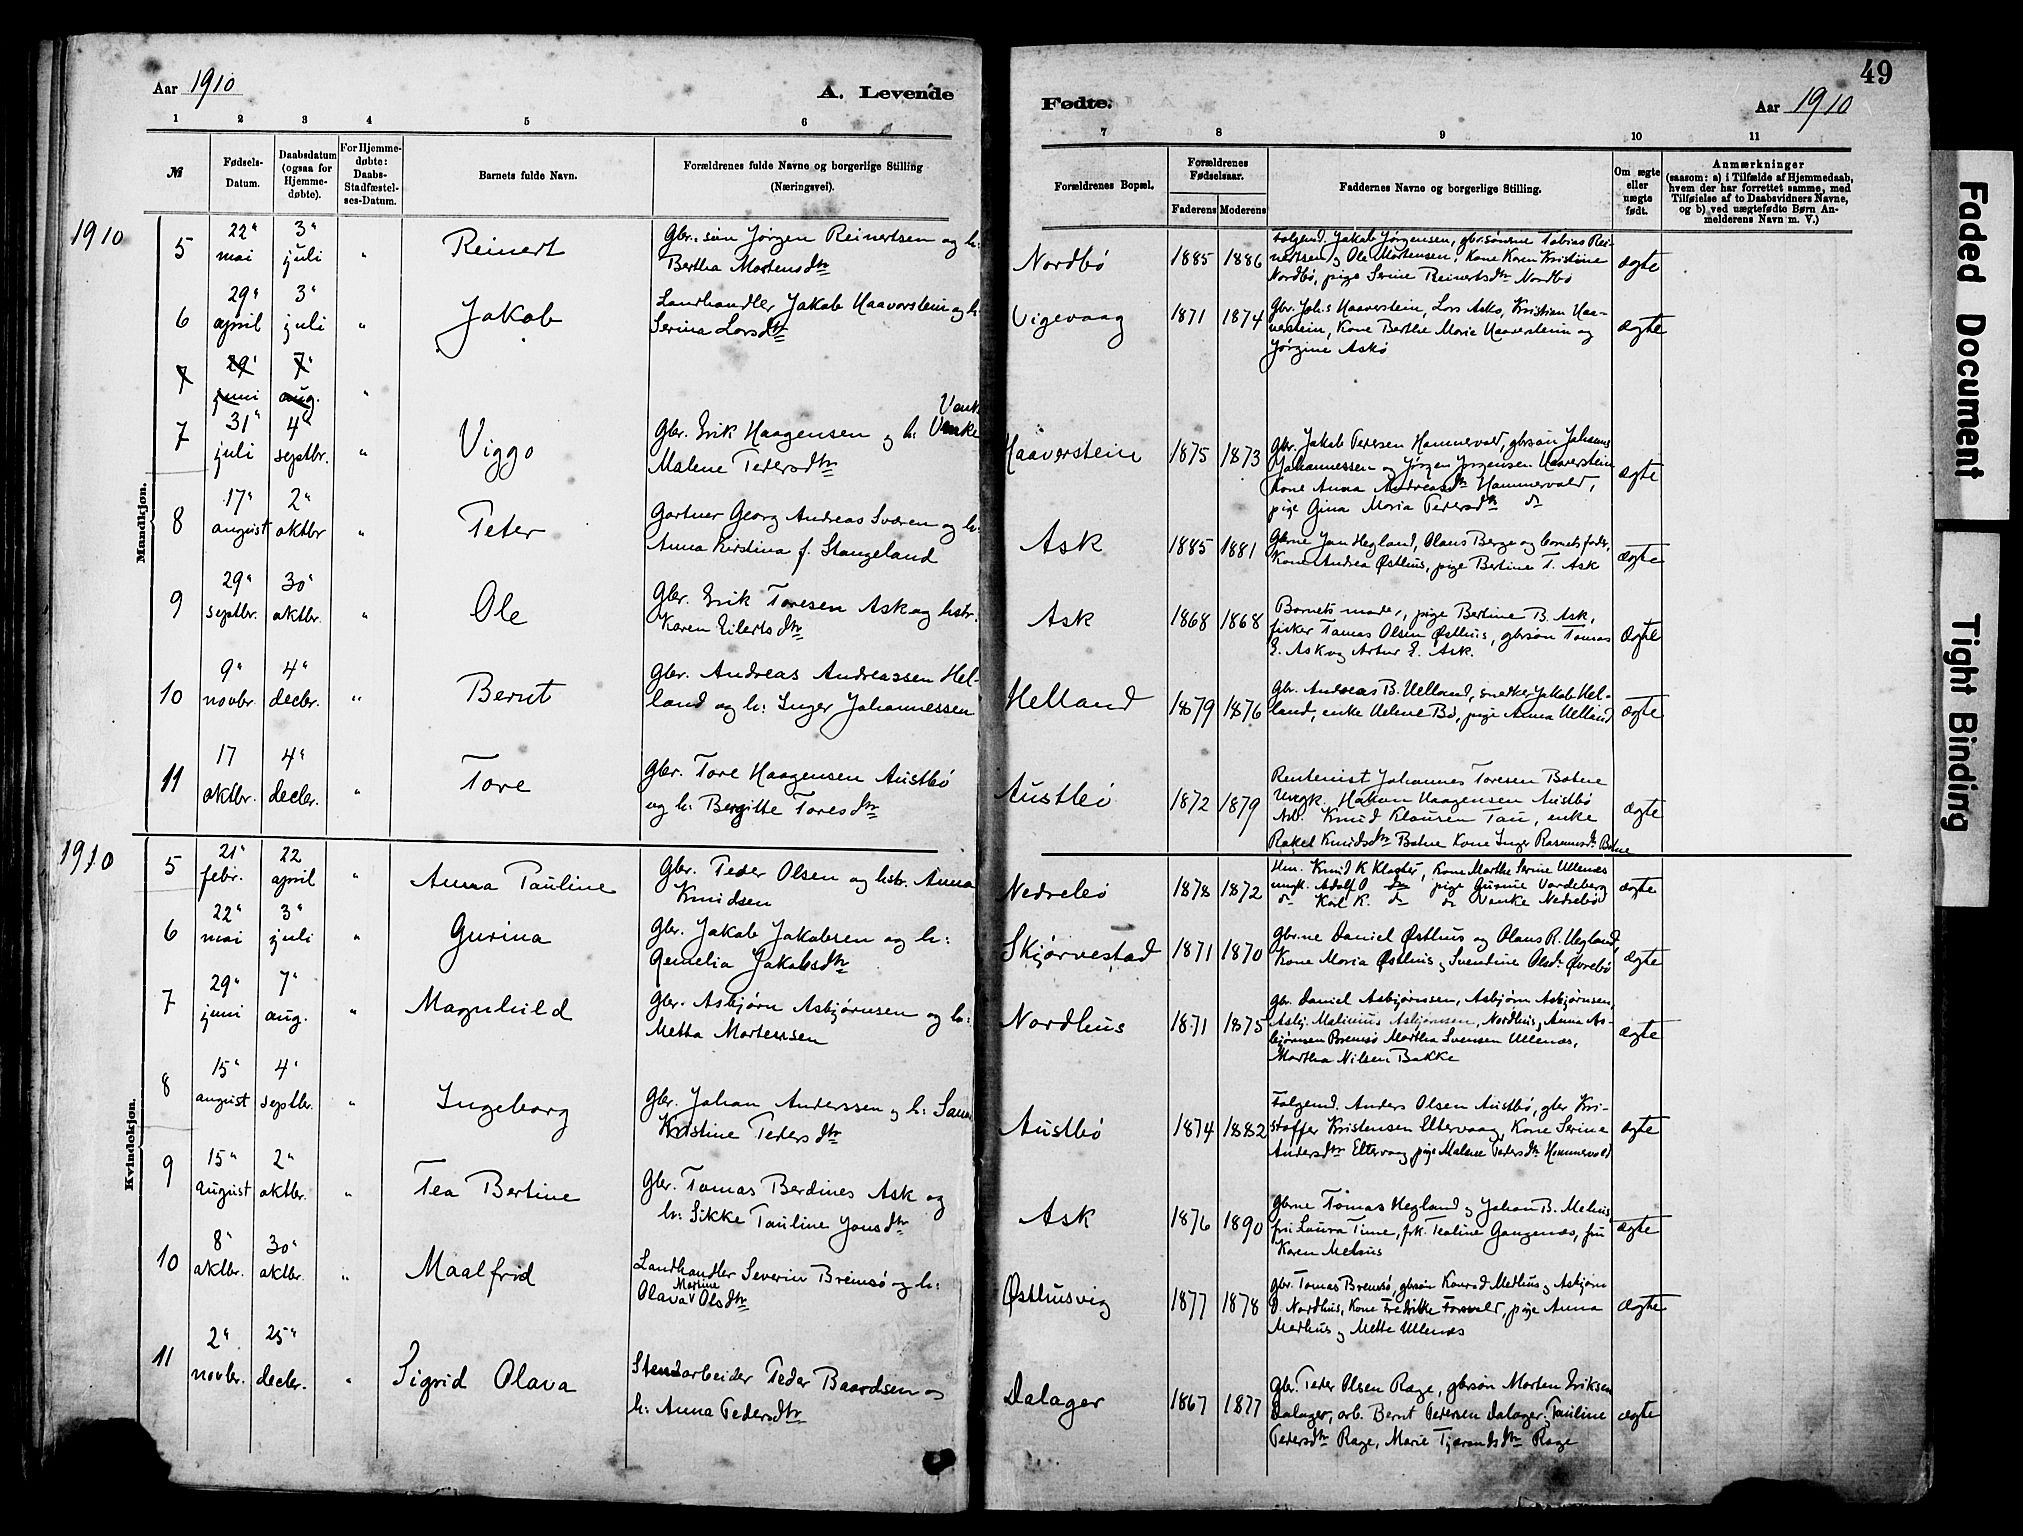 Aar 1910
A. Levende
1 2 3 4 5 6
№
Fødsels-
Datum.
Daabsdatum
(ogsaa for
Hjemme-
døbte).
For Hjemme-
døbte:
Daabs-
Stadfæstel-
ses-Datum.
Barnets fulde Navn.
Forældrenes fulde Navne og borgerlige Stilling
(Næringsvei).
49
Fødte.
Aar 1910
7 8 9 10 11
Forældrenes Bopæl.
Forældrenes
Fødselsaar.
Faderens Moderens
Faddernes Navne og borgerlige Stilling.
Om ægte
eller
uægte
født.
Anmærkninger
(saasom: a) i Tilfælde af Hjemmedaab,
hvem der har forrettet samme, med
Tilføielse af to Daabsvidners Navne,
og b) ved uægtefødte Børn An-
melderens Navn m. V.)
1910
Mandkjøn.
5 22" mai 3" juli " Reinert
Gbr.søn Jørgen Reinertsen og h:
Bertha Mortensdtr
Nordbø 1885 1886
Folgemd. Jakob Jørgensen, gbr.sønerne Tobias Rei-
nertsen og Ole Mortensen, Kone Karen Kristine
Nordbø, pige Serine Reinertsdtr Nordbø
ægte
6 29" april 3" juli " Jakob
Landhandler Jakob Haaverstein og h:
Serina Larsdtr
Vigevaag 1871 1874
Gbr. Johs Haaverstein, Lars Askø, Kristian Haa-
verstein, Kone Berthe Marie Haaverstein og
Jørgine Askø
ægte
7 29" juni 7" aug. "
7 31" juli 4" septbr. " Viggo
Gbr. Erik Haagensen og h: Venke
Malene Pedersdtr
Haaverstein 1875 1873
Gbr. Jakob Pedersen Hammervold, gbrsøn Johannes
Johannessen og Jørgen Jørgensen Haaverstein
Kone Anna Andreasdtr Hammervold,
pige Gina Maria Pedersdtr do
ægte
8 17" august 2" oktbr " Peter
Gartner Georg Andreas Sværen og h:
Anna Kirstina f. Stangeland
Ask 1885 1881
Gbrne Jan Hegland, Olaus Berge og barnets fader,
Kone Andrea Østhus, pige Bertine T. Ask
ægte
9 29" septbr. 30" oktbr. " Ole
Gbr. Erik Toresen Ask og hstr.
Karen Eilertsdtr
Ask 1868 1868
Barnets moder, pige Bertine B. Ask,
fisker Tomas Olsen Østhus, gbrsøn Tomas
E. Ask og Artur E. Ask.
ægte
10 9" novbr. 4" decbr. " Bernt
Gbr. Andreas Andreassen Hel-
land og h: Inger Johannessen
Helland 1879 1876
Gbr. Andreas B. Helland, snedker Jakob Hel-
land, enke Helene Bø, pige Anna Helland
ægte
11 17 oktbr. 4" decbr. " Tore
Gbr. Tore Haagensen Austbø
og h: Bergitte Toresdtr
Austbø 1872 1879
Rentenist Johannes Toresen Botne
Ungk. Hakon Haagensen Austbø
Arb. Knud Klausen Tau, enke
Rakel Knudsdtr Botne Kone Inger Rasmusdr Botne
ægte
1910
Kvindekjøn.
5 21" febr. 22 april " Anna Pauline
Gbr. Peder Olsen og hstr. Anna
Knudsen
Nedrebø 1878 1872
Hm. Knud K Kloster, Kone Marthe Serine Ullenes
ungk. Adolf O do pige Gurine Vardeberg
do Karl K. do do Venke Nedrebø
ægte
6 22" mai 3" juli " Gurina
Gbr. Jakob Jakobsen og h:
Cornelia Jakobsdtr
Skjørvestad 1871 1870
Gbr.ne Daniel Østhus og Olaus R. Hegland,
Kone Maria Østhus og Svendine Olsdr Øvrebø
ægte
7 29" juni 7" aug. " Magnhild
Gbr. Asbjørn Asbjørnsen og h:
Metha Mortensen
Nordhus 1871 1875
Gbr. Daniel Asbjørnsen, Asbjørn Asbjørnsen,
Asbj. Malinius Asbjørnsen, Nordhus, Anna As-
bjørnsen Bremsø Martha Svensen Ullenes,
Martha Nilsen Bakke
ægte
8 15" august 4" septbr. " Ingeborg
Gbr. Johan Anderssen og h:
Kristine Pedersdtr
Austbø 1874 1882
Folgemd. Anders Olsen Austbø, gbr Kri-
stoffer Kristensen Eltervaag, Kone Serina
Andersdtr Eltervaag pige Malene Pedersdtr Hammervold
ægte
9 15" august 2" oktbr. " Tea Bertine
Gbr. Tomas Berdines Ask og
h: Sikke Pauline Jonsdtr
Ask 1876 1890
Gbrne Tomas Hegland og Johan B. Melhus
fru Laura Time, frk. Tealine Gangenes, fru
Karen Melhus
ægte
10 8" oktbr. 30" oktbr. " Maalfrid
Landhandler Severin Bremsø og h:
Olava Marine Olsdtr
Østhusvig 1877 1878
Gbr. Tomas Bremsø, gbrsøn Konrad Medhus og Asbjørn
D. Nordhus, Kone Fredrikke Forsvold, pige Anna
Medhus og Mette Ullenes
ægte
11 2" novbr. 25" decbr. " Sigrid Olava
Stenarbeider Peder Baardsen og
h: Anna Pedersdtr
Dalager 1867 1877
Gbr. Peder Olsen Rage, gbrsøn Morten Eriksen
Dalager, arb. Bernt Pedersen Dalager, Pauline
Pedersdtr Rage, Marie Tjerandsdtr Rage
ægte
Faded Document
Tight Binding